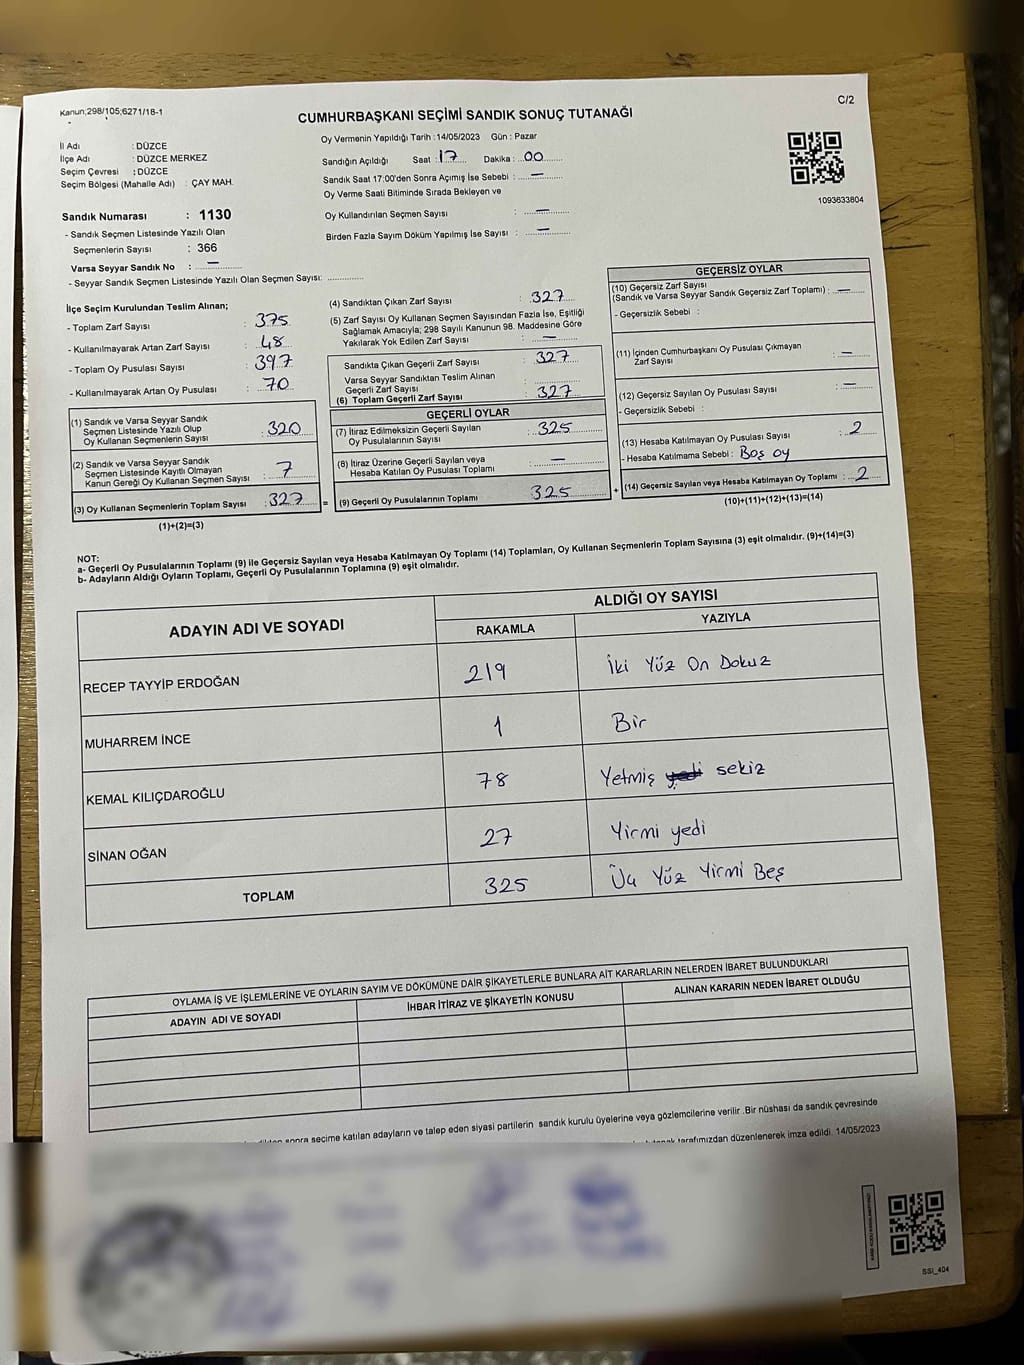 Kanun;298/105;6271/18-1
C/2
CUMHURBAŞKANI SEÇİMİ SANDIK SONUÇ TUTANAĞI
İl Adı : DÜZCE
İlçe Adı : DÜZCE MERKEZ
Seçim Çevresi : DÜZCE
Seçim Bölgesi (Mahalle Adı) : ÇAY MAH.
Oy Vermenin Yapıldığı Tarih :14/05/2023 Gün : Pazar
Sandığın Açıldığı Saat : 17 Dakika : 00
Sandık Saat 17:00'den Sonra Açımış İse Sebebi : —
Oy Verme Saati Bitiminde Sırada Bekleyen ve
Oy Kullandırılan Seçmen Sayısı : —
Birden Fazla Sayım Döküm Yapılmış İse Sayısı : —
1093633804
Sandık Numarası : 1130
- Sandık Seçmen Listesinde Yazılı Olan
Seçmenlerin Sayısı : 366
Varsa Seyyar Sandık No : —
- Seyyar Sandık Seçmen Listesinde Yazılı Olan Seçmen Sayısı: ..............
İlçe Seçim Kurulundan Teslim Alınan;
- Toplam Zarf Sayısı : 375
- Kullanılmayarak Artan Zarf Sayısı : 48
- Toplam Oy Pusulası Sayısı : 397
- Kullanılmayarak Artan Oy Pusulası : 70
(1) Sandık ve Varsa Seyyar Sandık
Seçmen Listesinde Yazılı Olup
Oy Kullanan Seçmenlerin Sayısı : 320
(2) Sandık ve Varsa Seyyar Sandık
Seçmen Listesinde Kayıtlı Olmayan
Kanun Gereği Oy Kullanan Seçmen Sayısı : 7
(3) Oy Kullanan Seçmenlerin Toplam Sayısı : 327 =
(1)+(2)=(3)
(4) Sandıktan Çıkan Zarf Sayısı : 327
(5) Zarf Sayısı Oy Kullanan Seçmen Sayısından Fazla İse, Eşitliği
Sağlamak Amacıyla; 298 Sayılı Kanunun 98. Maddesine Göre
Yakılarak Yok Edilen Zarf Sayısı : —
Sandıkta Çıkan Geçerli Zarf Sayısı : 327
Varsa Seyyar Sandıktan Teslim Alınan
Geçerli Zarf Sayısı : ..............
(6) Toplam Geçerli Zarf Sayısı : 327
GEÇERLİ OYLAR
(7) İtiraz Edilmeksizin Geçerli Sayılan
Oy Pusulalarının Sayısı : 325
(8) İtiraz Üzerine Geçerli Sayılan veya
Hesaba Katılan Oy Pusulası Toplamı : —
(9) Geçerli Oy Pusulalarının Toplamı : 325 +
GEÇERSİZ OYLAR
(10) Geçersiz Zarf Sayısı
(Sandık ve Varsa Seyyar Sandık Geçersiz Zarf Toplamı) : —
- Geçersizlik Sebebi :
(11) İçinden Cumhurbaşkanı Oy Pusulası Çıkmayan
Zarf Sayısı : —
(12) Geçersiz Sayılan Oy Pusulası Sayısı : —
- Geçersizlik Sebebi :
(13) Hesaba Katılmayan Oy Pusulası Sayısı : 2
- Hesaba Katılmama Sebebi : Boş oy
(14) Geçersiz Sayılan veya Hesaba Katılmayan Oy Toplamı : 2
(10)+(11)+(12)+(13)=(14)
NOT:
a- Geçerli Oy Pusulalarının Toplamı (9) ile Geçersiz Sayılan veya Hesaba Katılmayan Oy Toplamı (14) Toplamları, Oy Kullanan Seçmenlerin Toplam Sayısına (3) eşit olmalıdır. (9)+(14)=(3)
b- Adayların Aldığı Oyların Toplamı, Geçerli Oy Pusulalarının Toplamına (9) eşit olmalıdır.
ADAYIN ADI VE SOYADI
ALDIĞI OY SAYISI
RAKAMLA YAZIYLA
RECEP TAYYİP ERDOĞAN 219 İki Yüz On Dokuz
MUHARREM İNCE 1 Bir
KEMAL KILIÇDAROĞLU 78 Yetmiş yedi sekiz
SİNAN OĞAN 27 Yirmi yedi
TOPLAM 325 Üç Yüz Yirmi Beş
OYLAMA İŞ VE İŞLEMLERİNE VE OYLARIN SAYIM VE DÖKÜMÜNE DAİR ŞİKAYETLERLE BUNLARA AİT KARARLARIN NELERDEN İBARET BULUNDUKLARI
ADAYIN ADI VE SOYADI İHBAR İTİRAZ VE ŞİKAYETİN KONUSU ALINAN KARARIN NEDEN İBARET OLDUĞU
sonra seçime katılan adayların ve talep eden siyasi partilerin sandık kurulu üyelerine veya gözlemcilerine verilir .Bir nüshası da sandık çevresinde
tarafımızdan düzenlenerek imza edildi. 14/05/2023
SSI_404